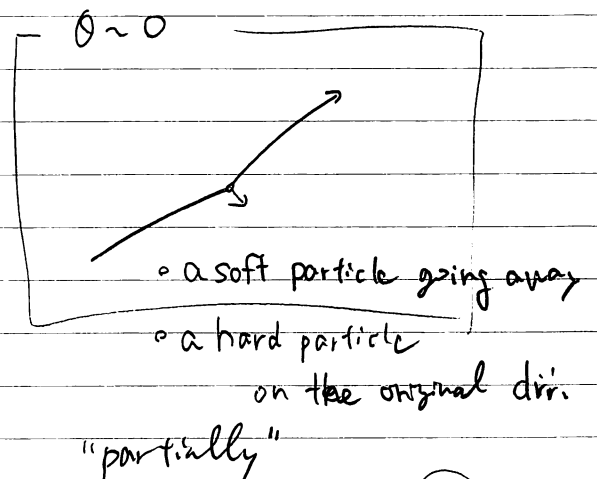 θ ~ 0
◦ a soft particle going away
◦ a hard particle
on the original dir.
"partially"